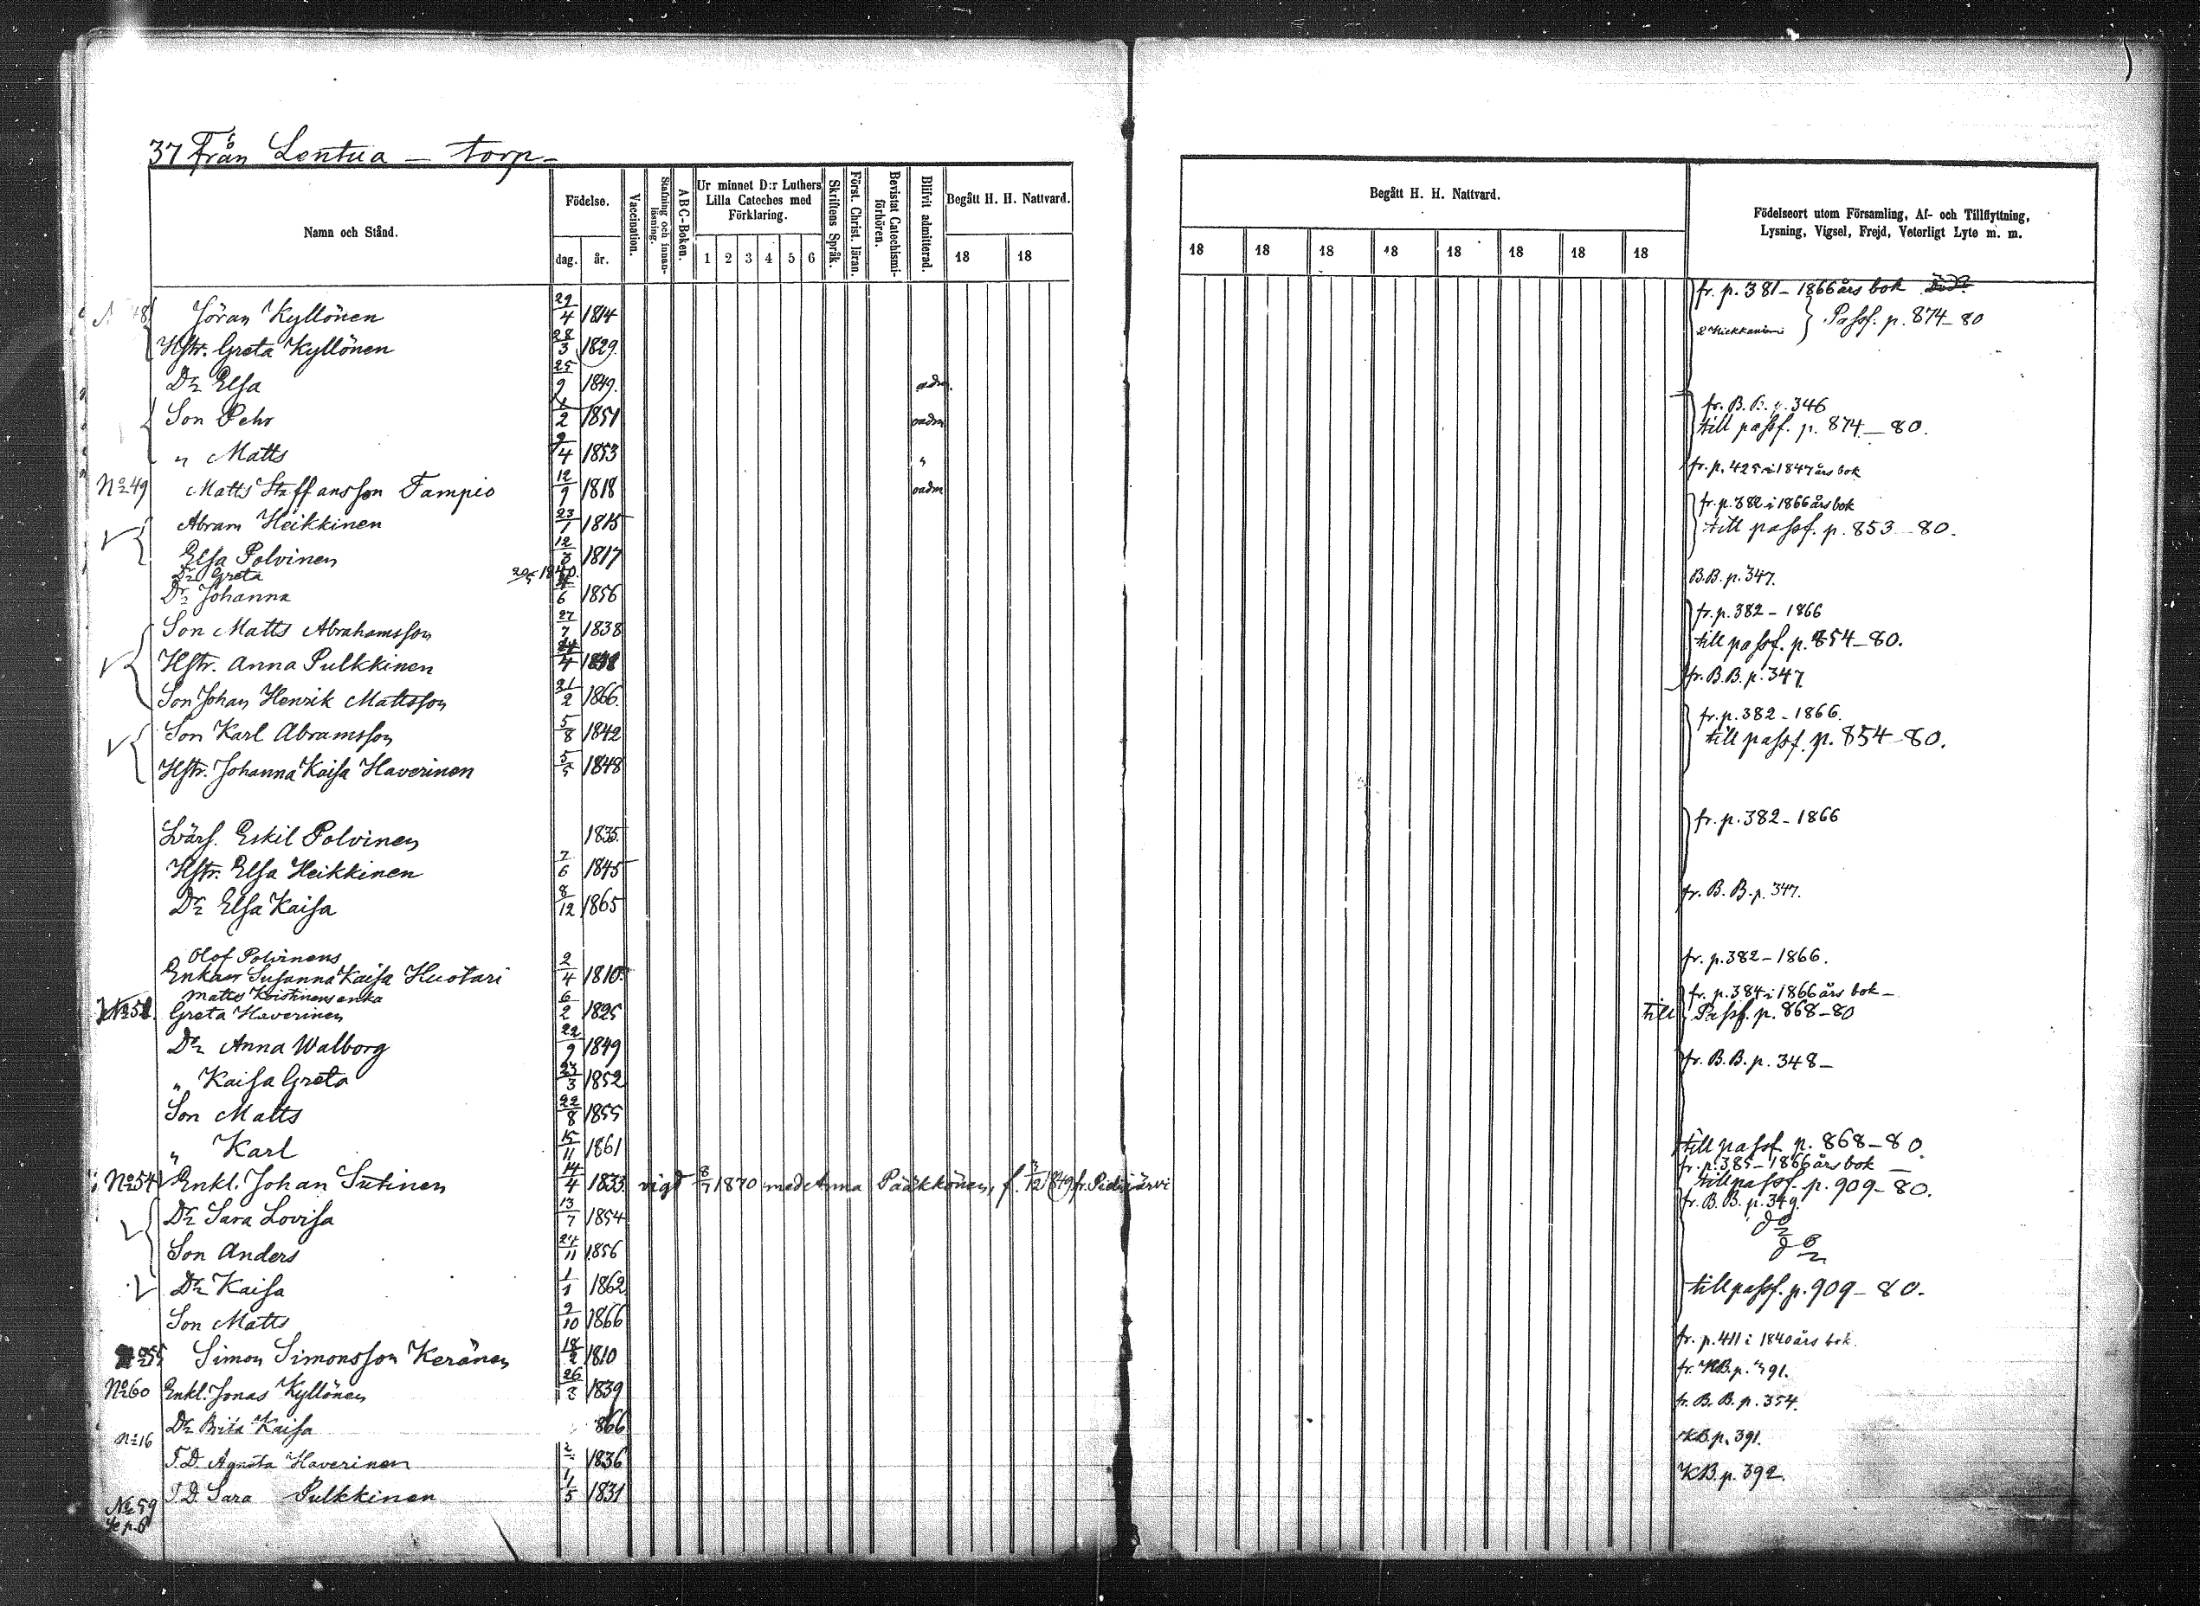 37 Från Lentua – torp –
Namn och Stånd.
Födelse.
dag. år.
Vaccination.
Stafning och innan-läsning.
ABC-Boken.
Ur minnet D:r Luthers Lilla Cateches med Förklaring.
1 2 3 4 5 6
Skriftens Språk.
Först. Christ. läran.
Bevistat Catechismi-förhören.
Blifvit admitterad.
Begått H. H. Nattvard.
18 18
Begått H. H. Nattvard.
18 18 18 18 18 18 18 18
Födelseort utom Församling, Af- och Tillflyttning,
Lysning, Vigsel, Frejd, Veterligt Lyte m. m.
Jöran Kyllönen 29/4 1814 fr. p. 381 – 1866 års bok
Hstr. Greta Kyllönen 28/3 1829. Passf. p. 874–80
Dr Elsa 25/9 1849. adm.
Son Pehr 2 1851 oadm fr. B. B. p. 346
till passf. p. 874 – 80.
„ Matts 9/4 1853 „
No 49 Matts Staffansson Tampio 12/9 1818 oadm fr. p. 425 i 1847 års bok
Abram Heikkinen 23/1 1815 fr. p. 382 i 1866 års bok
till passf. p. 853–80.
Elsa Polvinen 12/3 1817
Dr Greta
Dr Johanna 6 1856 B.B. p. 347.
Son Matts Abrahamsson 27/7 1838 fr. p. 382 – 1866
Hstr. Anna Pulkkinen 24/4 till passf. p. 854–80.
Son Johan Henrik Mattsson 21/2 1866. fr. B. B. p. 347
Son Karl Abramsson 5/8 1842 fr. p. 382 – 1866.
till passf. p. 854–80.
Hstr. Johanna Kaisa Haverinen 5/5 1848
Eskil Polvinen 1835. fr. p. 382 – 1866
Hstr. Elsa Heikkinen 7/6 1845
Dr Elsa Kaisa 8/12 1865 fr. B. B. p. 347.
Olof Polvinens
Enkan Susanna Kaisa Huotari 2/4 1810. fr. p. 382 – 1866.
Matts Koistinens enka fr. p. 384 i 1866 års bok –
Greta Haverinen 6/2 1825 till Passf. p. 868–80
Dr Anna Walborg 22/9 1849 fr. B. B. p. 348 –
„ Kaisa Greta 23/3 1852
Son Matts 22/8 1855
„ Karl 15/11 1861 till passf. p. 868–80.
No 54 Enkl. Johan Sutinen 14/4 1833 vigd 8/7 1870 med Anna Pääkkönen, f. /12 1849 fr. Pidisjärvi fr. p. 385 – 1866 års bok –
till passf. p. 909–80.
Dr Sara Lovisa 13/7 1854 fr. B. B. p. 349.
Son Anders 24/11 1856 do
do
Dr Kaisa 1/1 1862 till passf. p. 909–80.
Son Matts 9/10 1866
Simon Simonsson Keränen 18/2 1810 fr. p. 411 i 1840 års bok.
No 60 Enkl. Jonas Kyllönen 26 1839 fr. KB. p. 391.
Dr Brita Kaisa 866 fr. B. B. p. 354.
No 16
T. D. Agneta Haverinen 1836 KB. p. 391.
T. D. Sara Pulkkinen 1/5 1831 KB. p. 392.
No 59